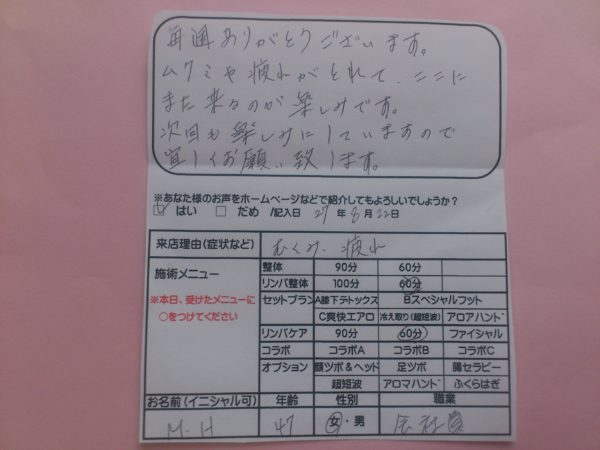 毎週ありがとうございます。
ムクミや疲れがとれて、ここに
また来るのが楽しみです。
次回も楽しみにしていますので
宜しくお願い致します。
※あなた様のお声をホームページなどで紹介してもよろしいでしょうか?
☑ はい □ だめ /記入日 27 年 8 月 22 日
来店理由(症状など) むくみ、疲れ
施術メニュー
※本日、受けたメニューに
○をつけてください
整体 90分 60分
リンパ整体 100分 60分
セットプラン A膝下デトックス Bスペシャルフット
C爽快エアロ 冷え取り(超短波) アロアハンド
リンパケア 90分 60分 フェイシャル
コラボ コラボA コラボB コラボC
オプション 顔ツボ&ヘッド 足ツボ 腸セラピー
超短波 アロマハンド ふくらはぎ
お名前(イニシャル可) 年齢 性別 職業
M.H 47 女・男 会社員